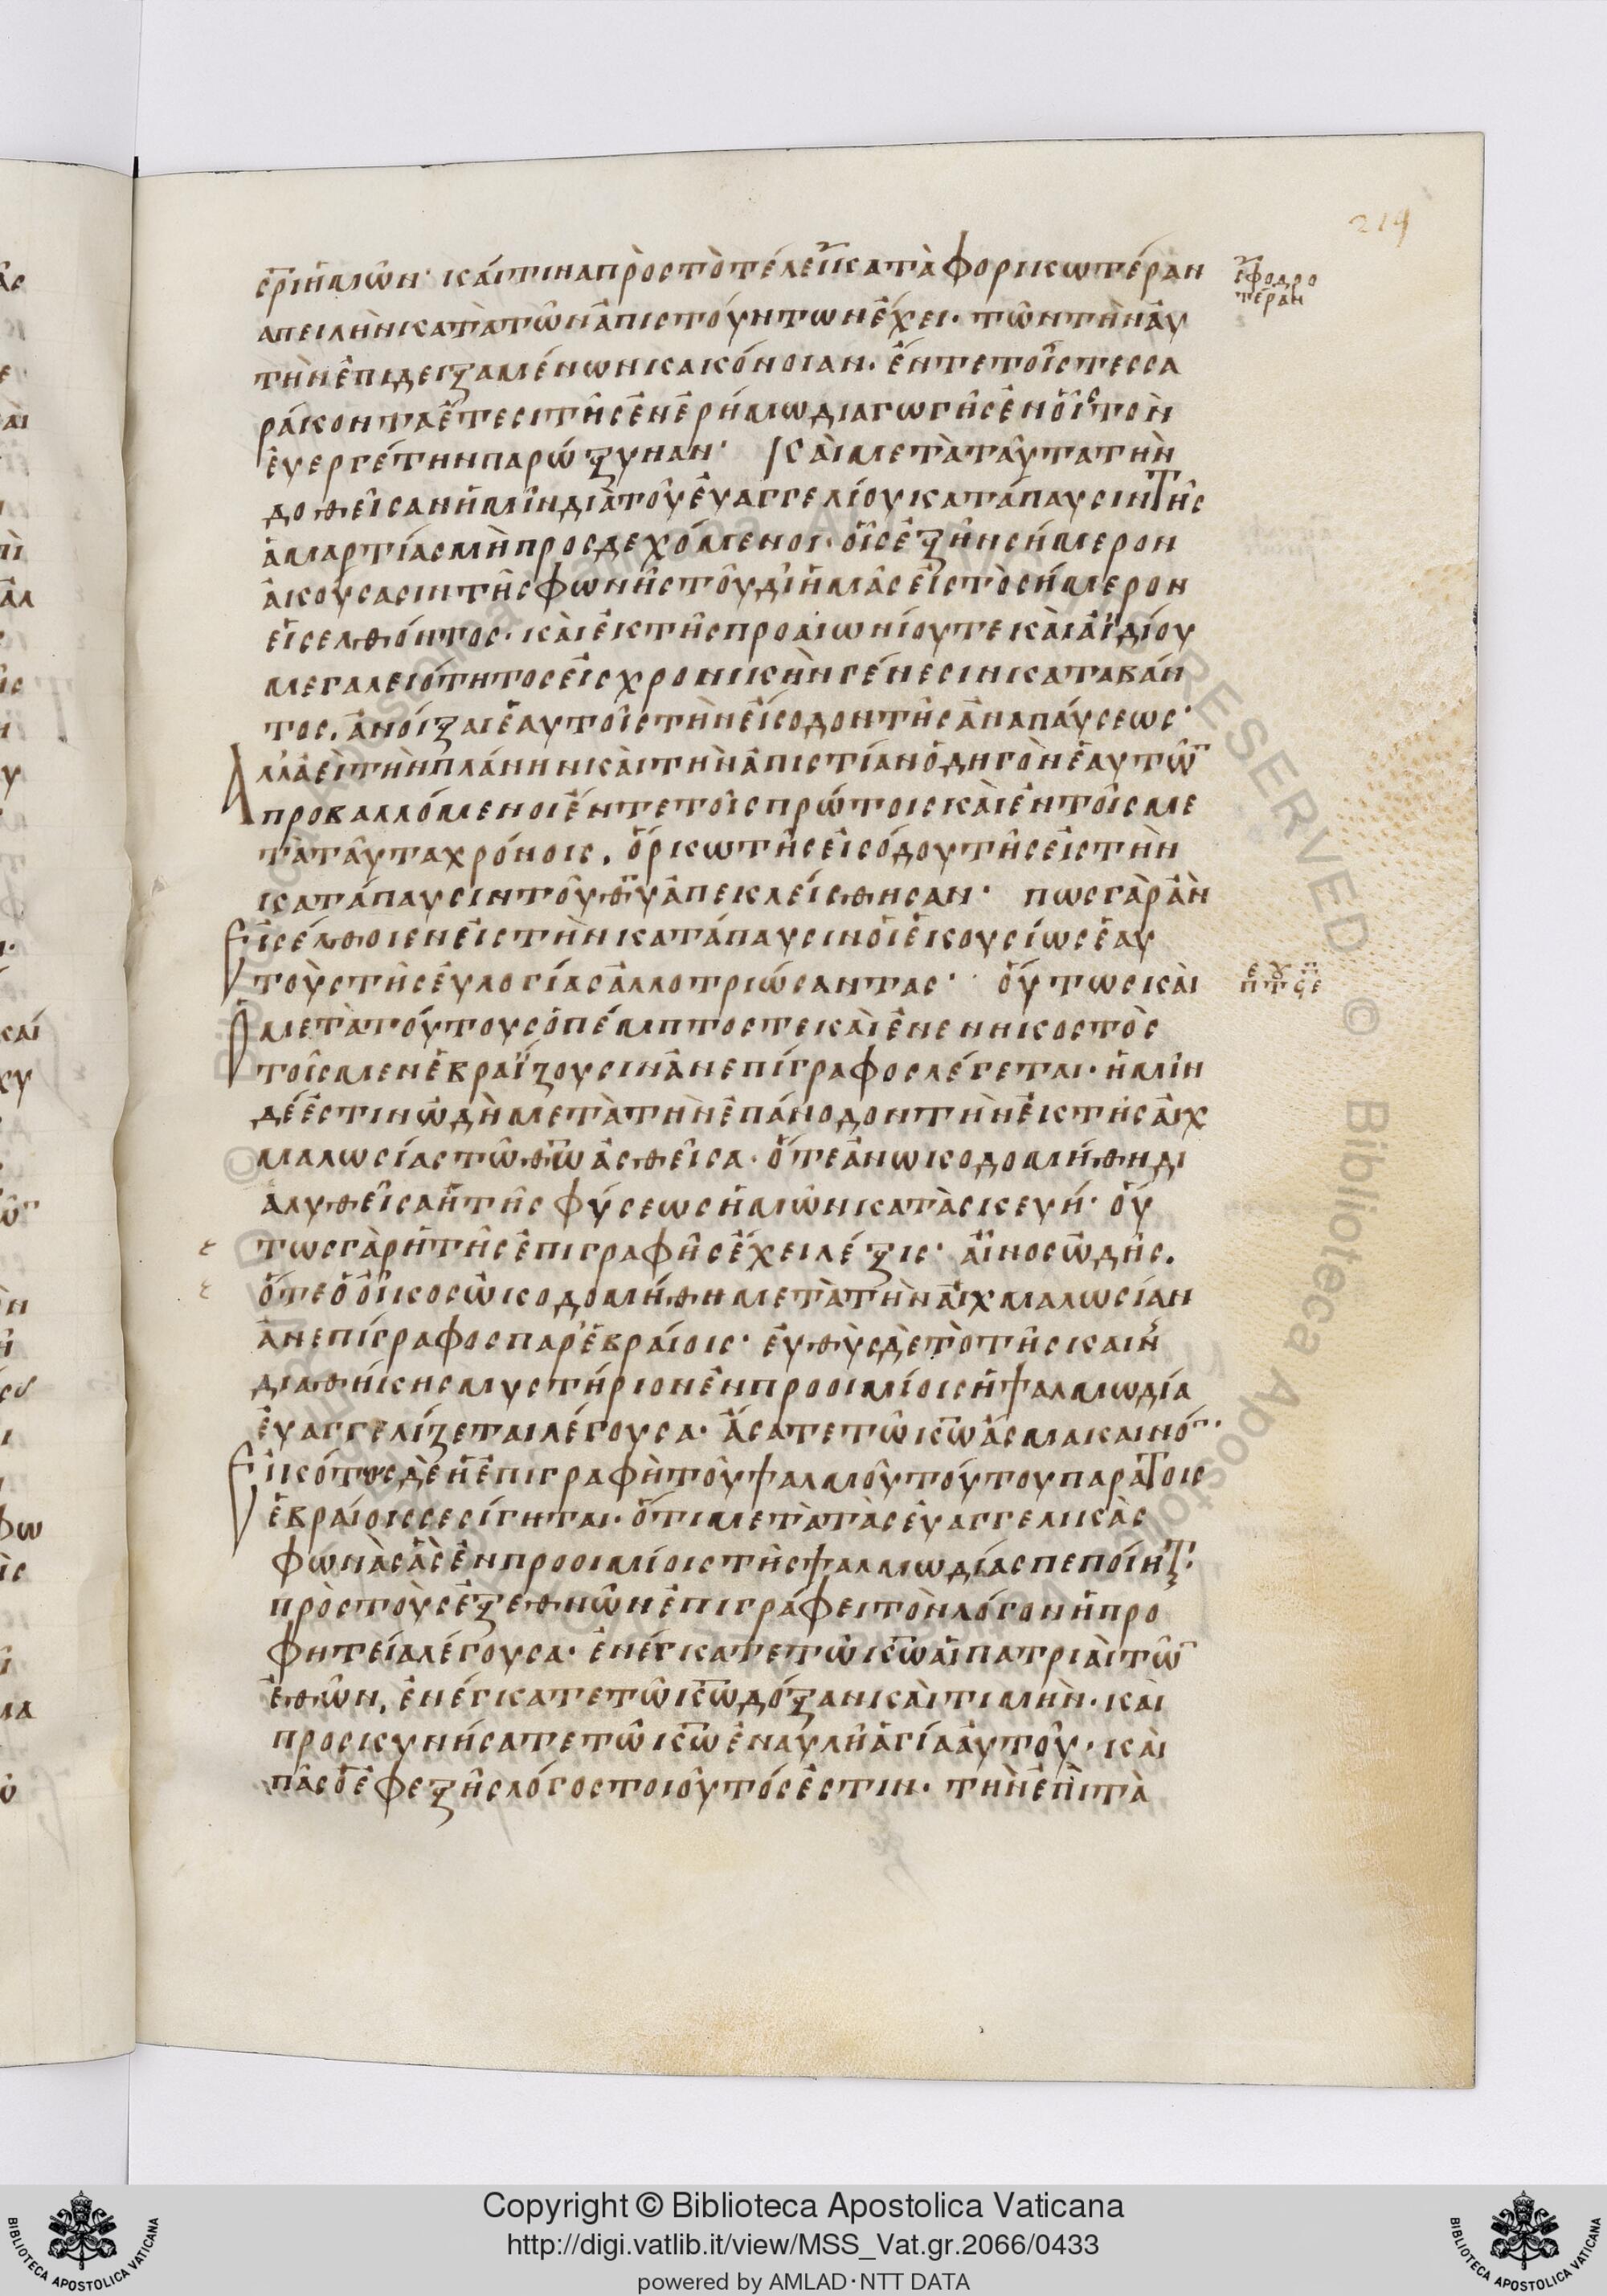 219
σ̅ρ̅ι ἡμῶν· καί τινα πρὸς τὸ τέλει κατὰφορικωτέραν
σφοδρο
τέραν
απειλὴν κατὰ τῶν ἀπιστούντων ἔχει· τῶν τὴν ἀυ
τὴν ἐπιδειξαμένων κακόνοιαν· ἔν τε τοῖς τεσσα
ράκοντα ἔτεσι τῆς ἐν ἐρήμω διαγωγῆς ἐν οἷς τὸν
ἐυεργέτην παρώξυναν· Κὰι μετὰ ταῦτα τὴν
δοθεῖσαν ἡμῖν διὰ τοῦ ἐυαγγελίου κατάπαυσιν τῆς
ἁμαρτίας μὴ προσδεχόμενοι· οἷς ἐξῆν σήμερον
ἀκούσασιν τῆς φωνῆς τοῦ δι ἡμᾶς εἰς τὸ σήμερον
εἰσελθόντος· κὰι ἐκ τῆς προαιωνίου τε κὰι ἀϊδίου
μεγαλειότητος εἰς χρονικὴν γένεσιν καταβάν
τος, ἀνοίξαι ἑαυτοῖς τὴν εἴσοδον τῆς ἀναπάυσεως·
Ἀλλ ἀεὶ τὴν πλάνην κὰι τὴν ἀπιστίαν ὁδηγὸν ἑαυτῶ̅
προβαλλόμενοι ἔν τε τοῖς πρώτοις κὰι ἐν τοῖς με
τὰ ταῦτα χρόνοις, ὅρκω τῆς εἰσόδου τῆς εἰς τὴν
κατάπαυσιν τοῦ θ̅υ̅ ἀπεκλείσθησαν· πως γὰρ ἂν
Εἰσέλθοιεν εἰς τὴν κατάπαυσιν οἱ ἑκουσίως ἑαυ
τοὺς τῆς ἐυλογίας ἀλλοτριώσαντας· ὅυτως κὰι
Ὁ μετὰ τούτους ὁ πέμπτος τε κὰι ἐνεννικοστὸς
τοῖς μεν ἑβραΐζουσιν ἀνεπίγραφος λέγεται· ἡμῖν
δέ ἐστιν ὠδὴ μετὰ τὴν ἐπάνοδον τὴν ἐκ τῆς ἀιχ
μαλωσίας τῶ θ̅ω̅ ἀσθεῖσα· ὅτε ἀνωκοδομήθη δι
αλυθεῖσα ἡ τῆς φύσεως ἡμῶν κατὰσκευή· ὅυ
τως γὰρ ἡ τῆς ἐπιγραφῆς ἔχει λέξις· ἀῖνος ὠδῆς,
ὅτε ὁ οἶκος ὠκοδομήθη μετὰ τὴν ἀιχμαλωσίαν
ἀνεπίγραφος παρ ἑβραίοις· ἐυθὺς δὲ τὸ τῆς καιν
διαθήκης μυστήριον ἐν προοιμίοις ἡ ψαλμωδία
ἐυαγγελίζεται λέγουσα· ἄσατε τῶ κ̅ω̅ ἆσμα καινό̅·
Εἰκότως δὲ ἡ ἐπιγραφὴ τοῦ ψαλμοῦ τούτου παρα τοις
ἑβραίοις σεσίγηται· ὅτι μετὰ τὰς ἐυαγγελικὰς
φωνὰς ἃς ἐν προοιμίοις τῆς ψαλμωδίας πεποίητ
πρὸς τοὺς ἐξ εθνῶν ἐπιγράφει τὸν λόγον ἡ προ
φητεία λέγουσα· ἐνέγκατε τῶ κ̅ω̅ ἁι πατριὰι τῶ̅
ἐθῶν, ἐνέγκατε τῶ κ̅ω̅ δόξαν κὰι τιμὴν· κὰι
προσκυνήσατε τῶ κ̅ω̅ ἐν αὐλῆ ἁγία ἀυτοῦ· κὰι
πᾶς ὁ ἐφεξῆς λόγος τοιοῦτός ἐστιν· τὴν ἐπὶ τὰ
Copyright © Biblioteca Apostolica Vaticana
http://digi.vatlib.it/view/MSS_Vat.gr.2066/0433
powered by AMLAD·NTT DATA
BIBLIOTECA APOSTOLICA VATICANA
BIBLIOTECA APOSTOLICA VATICANA